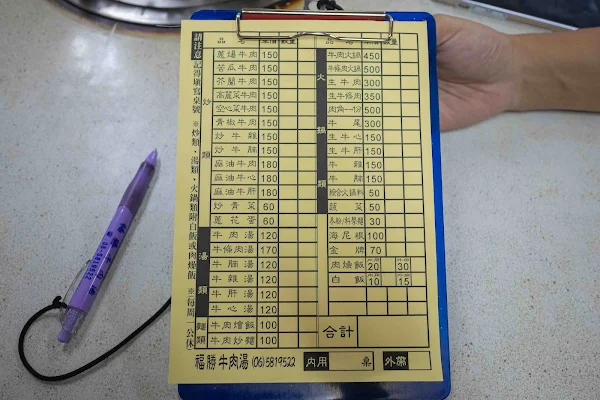 請注意記得填寫桌號 ※炒類、湯類、火鍋類附白飯或肉燥飯 ※每周 公休
品名 單價 數量
炒類
蔥爆牛肉 150
苦瓜牛肉 150
芥蘭牛肉 150
高麗菜牛肉 150
空心菜牛肉 150
青椒牛肉 150
炒牛雜 150
炒牛肚 150
麻油牛肉 180
麻油牛心 180
麻油牛肝 180
炒青菜 60
蔥花蛋 60
湯類
牛肉湯 120
牛條肉湯 170
牛腩湯 120
牛雜湯 120
牛肝湯 120
牛心湯 120
麵類
牛肉燴飯 100
牛肉炒麵 100
品名 單價 數量
火鍋類
牛肉火鍋 450
牛條肉火鍋 500
生牛肉 300
生牛條肉 350
肉角一份 500
牛尾 300
生牛心 150
生牛肝 150
牛雜 150
牛腩 150
綜合火鍋料 50
蔬菜 50
冬粉/科學麵 30
海尼根 100
金牌 70
肉燥飯 20 30
白飯 10 15
合計
福勝牛肉湯 (06)5819522 內用 桌 外帶